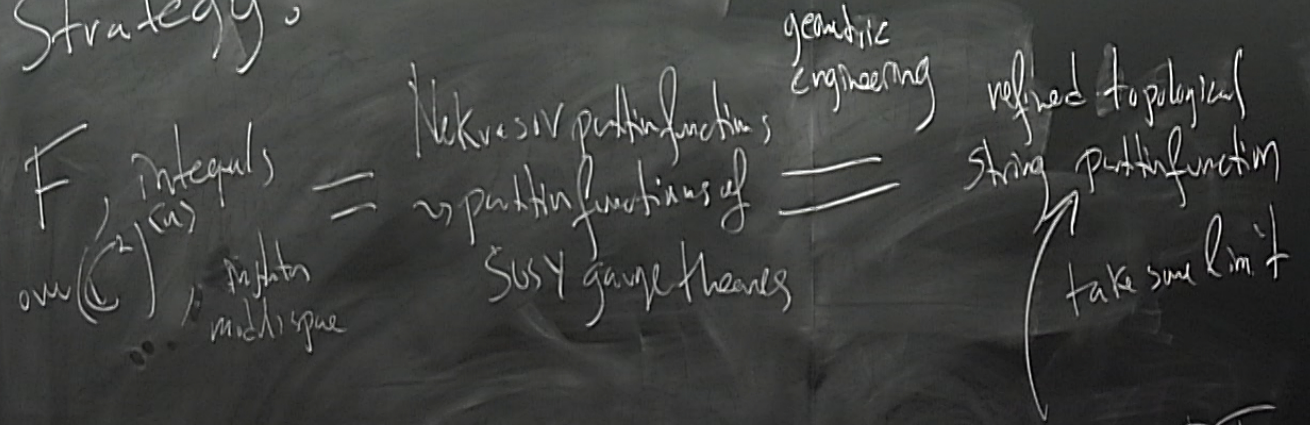 Strategy:
F, integrals
over (C²)^(n), instanton
moduli space
=
Nekrasov partitin functions
~> partitin functions of
SUSY gauge theories
geometric
engineering
=
refined topological
string partitin function
take some limit